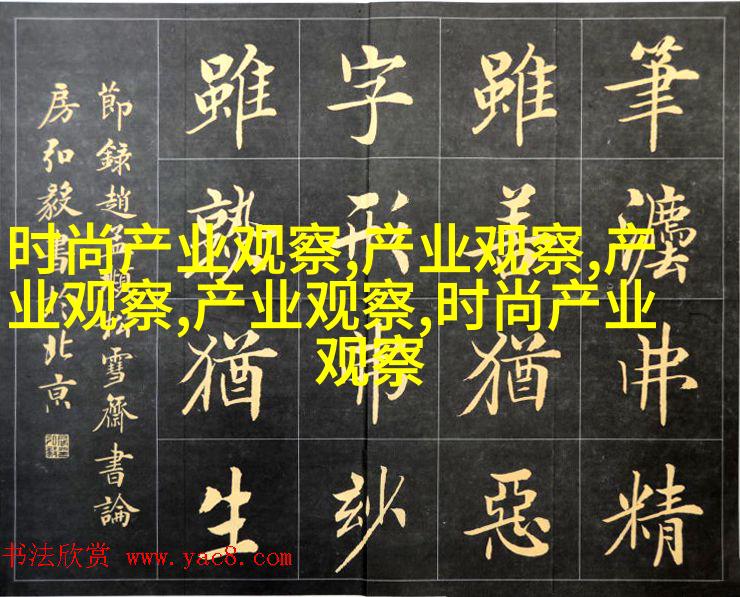 筆灋弗精
雖善猶惡
字形弗玅
雖熟猶生
節錄趙孟頫松雪齋書論
房弘毅書於北京
时尚产业观察,产业观察,产
业观察,产业观察,时尚产业
观察
书法欣赏 www.yac8.com